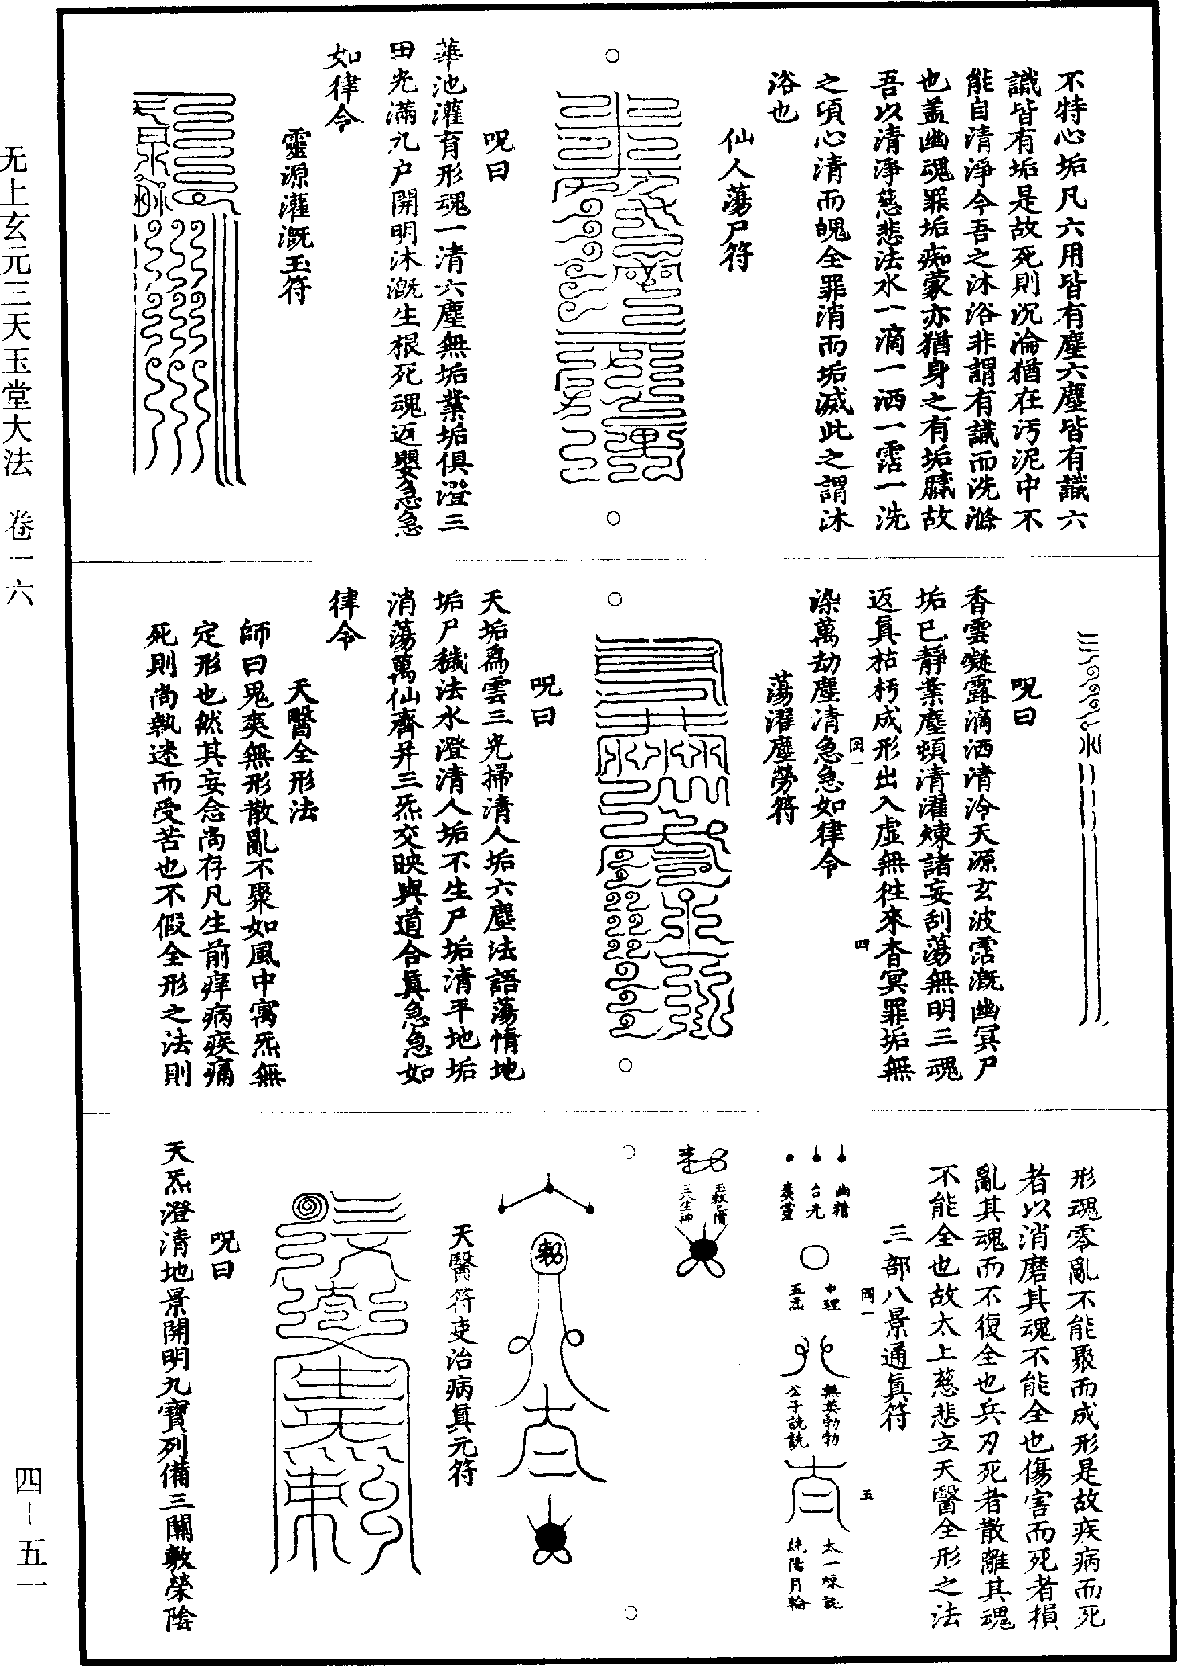 不特心垢凡六用皆有塵六塵皆有識六
識皆有垢是故死則沉淪猶在污泥中不
能自清淨今吾之沐浴非謂有識而洗滌
也蓋幽魂罪垢痴蒙亦猶身之有垢膩故
吾以清淨慈悲法水一滴一洒一霑一洗
之頃心清而魄全罪消而垢滅此之謂沐
浴也
仙人蕩尸符
呪曰
華池灌育形魂一清六塵無垢業垢俱澄三
田光滿九户開明沐溉生根死魂返嬰急急
如律令
靈源灌溉玉符
呪曰
香雲凝露滴洒清泠天源玄波霑溉幽冥尸
垢已靜業塵頓清灌煉諸妄刮蕩無明三魂
返真枯朽成形出入虛無徃來杳冥罪垢無
染萬劫塵清急急如律令
蕩濯塵勞符
呪曰
天垢為雲三光掃清人垢六塵法語蕩情地
垢尸穢法水澄清人垢不生尸垢清平地垢
消蕩萬仙齊昇三炁交映與道合真急急如
律令
天醫全形法
師曰鬼爽無形散亂不聚如風中寓炁無
定形也然其妄念尚存凡生前痒病疾痛
死則尚執迷而受苦也不假全形之法則
形魂零亂不能聚而成形是故疾病而死
者以消磨其魂不能全也傷害而死者損
亂其魂而不復全也兵刃死者散離其魂
不能全也故太上慈悲立天醫全形之法
三部八景通真符
幽精
台光
爽靈
中理
五炁
無英勃勃
公子詵詵
太一
純陽月輪
天醫符吏治病真元符
呪曰
天炁澄清地景開明九寶列備三關敷榮陰
无上玄元三天玉堂大法 卷一六
四－五一